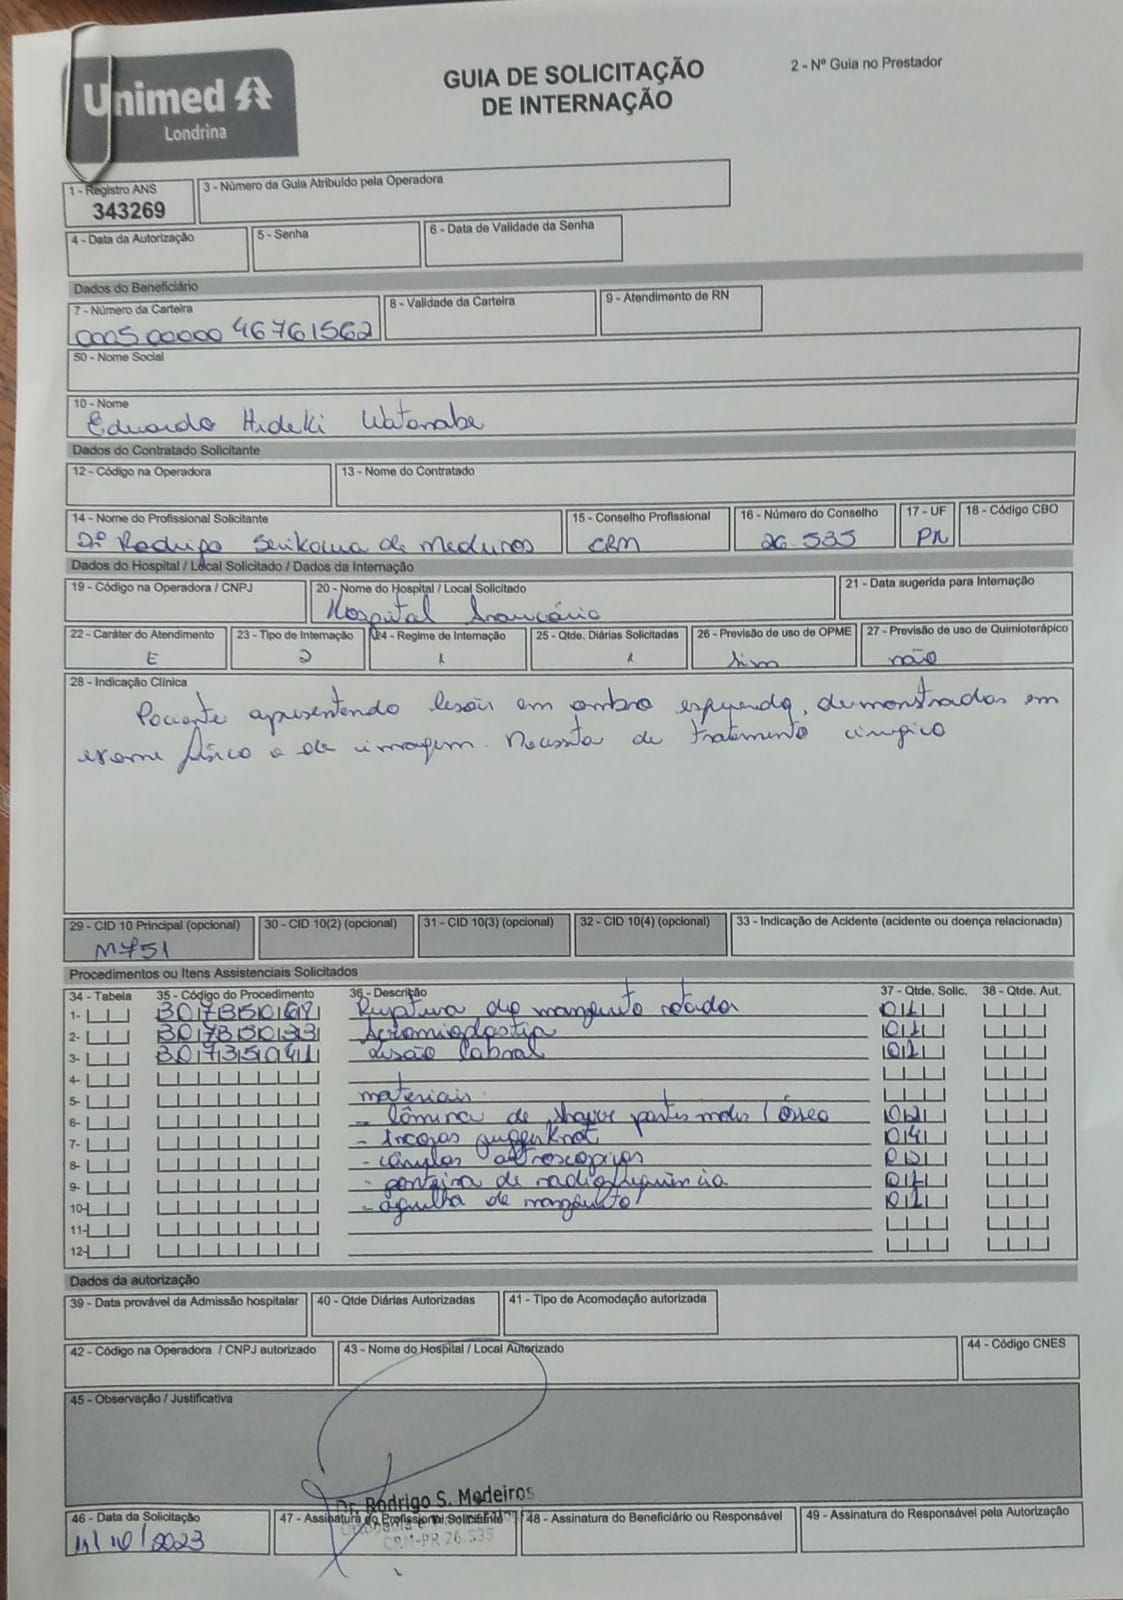 Unimed
Londrina
GUIA DE SOLICITAÇÃO
DE INTERNAÇÃO
2 - Nº Guia no Prestador
1 - Registro ANS
343269
3 - Número da Guia Atribuído pela Operadora
4 - Data da Autorização
5 - Senha
6 - Data de Validade da Senha
Dados do Beneficiário
7 - Número da Carteira
8 - Validade da Carteira
9 - Atendimento de RN
0005 00000 46761562
50 - Nome Social
10 - Nome
Eduardo Hideki Watanabe
Dados do Contratado Solicitante
12 - Código na Operadora
13 - Nome do Contratado
14 - Nome do Profissional Solicitante
15 - Conselho Profissional
16 - Número do Conselho
17 - UF
18 - Código CBO
Rodrigo de Medeiros
CRM
26.535
PR
Dados do Hospital / Local Solicitado / Dados da Internação
19 - Código na Operadora / CNPJ
20 - Nome do Hospital / Local Solicitado
21 - Data sugerida para Internação
Hospital Araucária
22 - Caráter do Atendimento
23 - Tipo de Internação
24 - Regime de Internação
25 - Qtde. Diárias Solicitadas
26 - Previsão de uso de OPME
27 - Previsão de uso de Quimioterápico
E
2
1
1
Sim
não
28 - Indicação Clínica
Paciente apresentando lesões em ombro esquerdo, demonstradas em
exame físico e de imagem. Necessita de tratamento cirúrgico
29 - CID 10 Principal (opcional)
30 - CID 10(2) (opcional)
31 - CID 10(3) (opcional)
32 - CID 10(4) (opcional)
33 - Indicação de Acidente (acidente ou doença relacionada)
M751
Procedimentos ou Itens Assistenciais Solicitados
34 - Tabela
35 - Código do Procedimento
36 - Descrição
37 - Qtde. Solic.
38 - Qtde. Aut.
1- Ruptura do manguito rotador 01
2- Acromioplastia 01
3- Lesão labral 01
4-
5- materiais
6- - lâmina de shaver partes moles / óssea
7- - âncoras 04
8- - cânulas artroscopicas
9- - ponteira de radiofrequência 01
10- - agulha de manguito 01
11-
12-
Dados da autorização
39 - Data provável da Admissão hospitalar
40 - Qtde Diárias Autorizadas
41 - Tipo de Acomodação autorizada
42 - Código na Operadora / CNPJ autorizado
43 - Nome do Hospital / Local Autorizado
44 - Código CNES
45 - Observação / Justificativa
Dr. Rodrigo S. Medeiros
46 - Data da Solicitação
47 - Assinatura do Profissional Solicitante
48 - Assinatura do Beneficiário ou Responsável
49 - Assinatura do Responsável pela Autorização
11/10/2023
CRM-PR 26.535